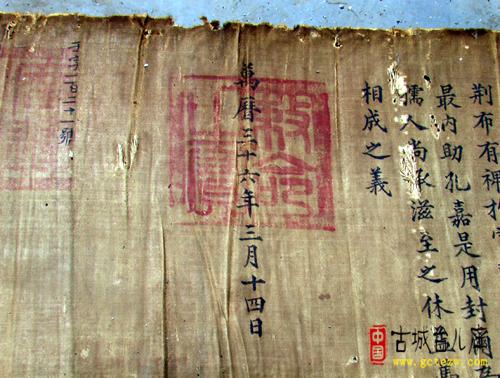 荆布有裨
最内助孔嘉是用封爾
孺人尚承滋至之休
相成之義
萬曆三十六年三月十四日
敕命之寶
字一百二十一號
中国
古城 儿
www.gctezw.com